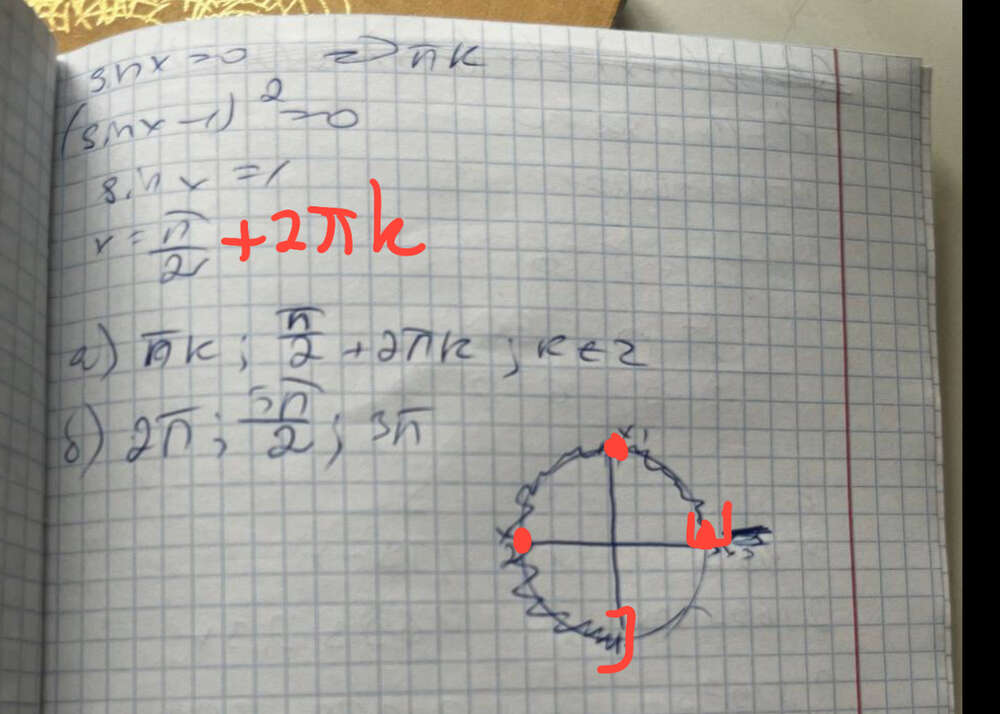 sinx=0 => πk
(sinx-1)²=0
sinx=1
x=π/2 +2πk
а) πk; π/2+2πk; k∈Z
б) 2π; 5π/2; 3π